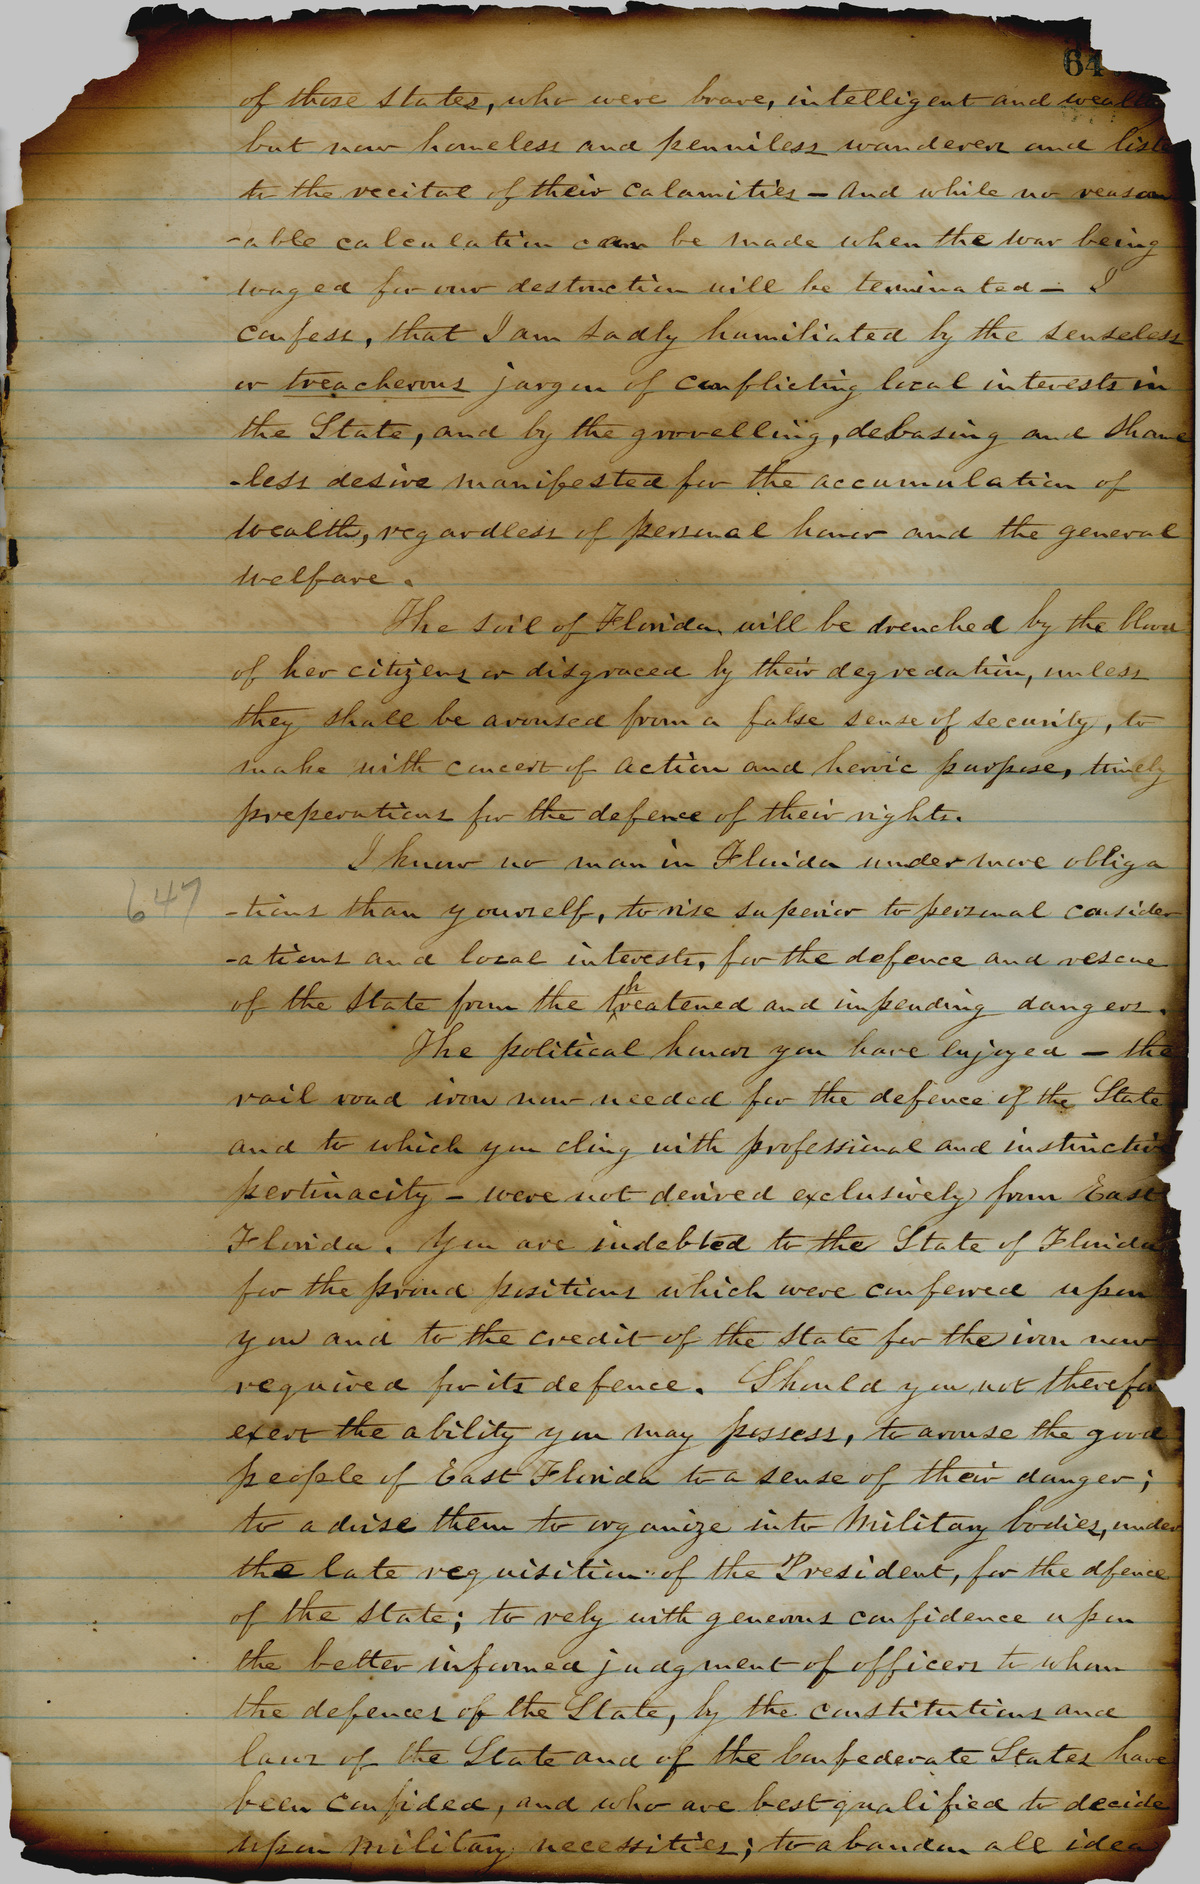 64
of those States, who were brave, intelligent and
but now homeless and penniless wanderers and
to the recital of their calamities – and while no reason
-able calculation can be made when the war being
waged for our destruction will be terminated – I
confess, that I am sadly humiliated by the senseless
or treacherous jargon of conflicting local interests in
the State, and by the grovelling, debasing and shame
-less desire manifested for the accumulation of
wealth, regardless of personal honor and the general
welfare.
The soil of Florida will be drenched by the blood
of her citizens or disgraced by their degredation, unless
they shall be aroused from a false sense of security, to
make with concert of action and heroic purpose, timely
preperations for the defence of their rights.
I know no man in Florida under more obliga
647
-tions than yourself, to rise superior to personal consider
-ations and local interests, for the defence and rescue
of the State from the threatened and impending dangers.
The political honors you have enjoyed – the
rail road iron now needed for the defence of the State
and to which you cling with professional and instinctive
pertinacity – were not derived exclusively from East
Florida. You are indebted to the State of Florida
for the proud positions which were conferred upon
you and to the credit of the State for the iron now
required for its defence. Should you not therefor
exert the ability you may possess, to arouse the good
people of East Florida to a sense of their danger;
to advise them to organize into Military bodies, under
the late requisition of the President, for the dfence
of the State; to rely with generous confidence upon
the better informed judgment of officers to whom
the defences of the State, by the constitutions and
laws of the State and of the Confederate States have
been confided, and who are best qualified to decide
upon military necessities; to abandon all idea